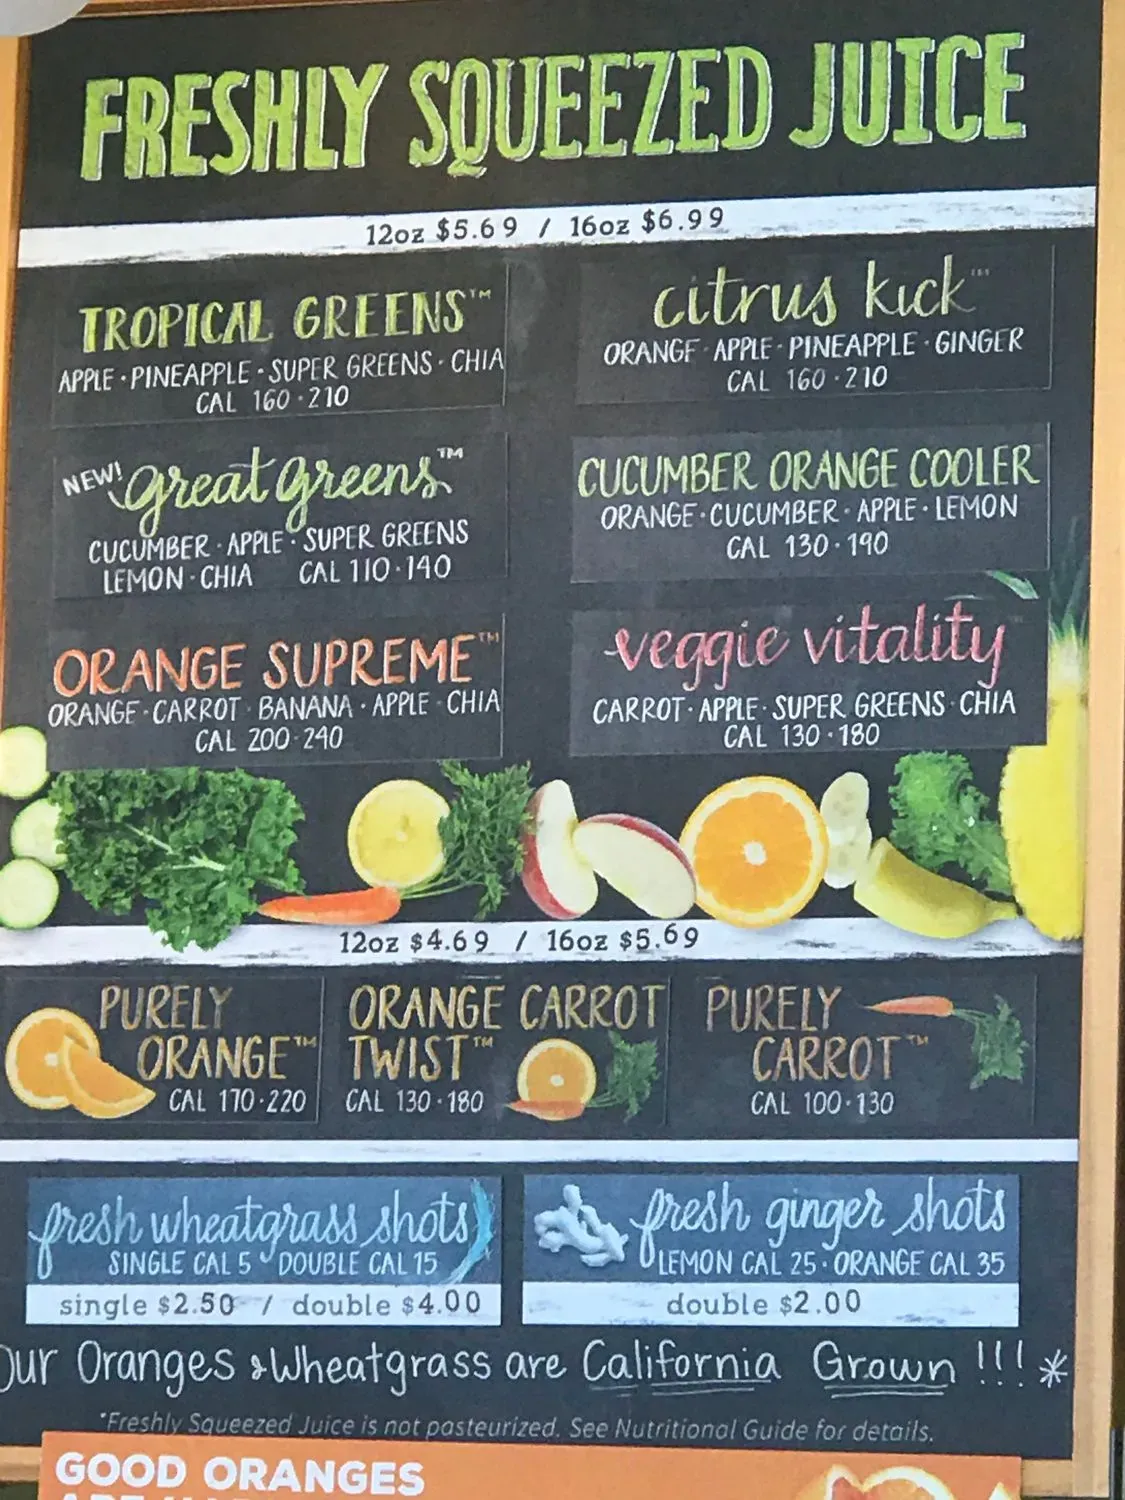 FRESHLY SQUEEZED JUICE
12oz $5.69 / 16oz $6.99
TROPICAL GREENS™
APPLE · PINEAPPLE · SUPER GREENS · CHIA
CAL 160 · 210
citrus kick™
ORANGE · APPLE · PINEAPPLE · GINGER
CAL 160 · 210
NEW! great greens™
CUCUMBER · APPLE · SUPER GREENS
LEMON · CHIA CAL 110 · 140
CUCUMBER ORANGE COOLER
ORANGE · CUCUMBER · APPLE · LEMON
CAL 130 · 190
ORANGE SUPREME™
ORANGE · CARROT · BANANA · APPLE · CHIA
CAL 200 · 240
veggie vitality
CARROT · APPLE · SUPER GREENS · CHIA
CAL 130 · 180
12oz $4.69 / 16oz $5.69
PURELY
ORANGE™
CAL 170 · 220
ORANGE CARROT
TWIST™
CAL 130 · 180
PURELY
CARROT™
CAL 100 · 130
fresh wheatgrass shots
SINGLE CAL 5 · DOUBLE CAL 15
single $2.50 / double $4.00
fresh ginger shots
LEMON CAL 25 · ORANGE CAL 35
double $2.00
Our Oranges & Wheatgrass are California Grown !!! *
*Freshly Squeezed Juice is not pasteurized. See Nutritional Guide for details.
GOOD ORANGES